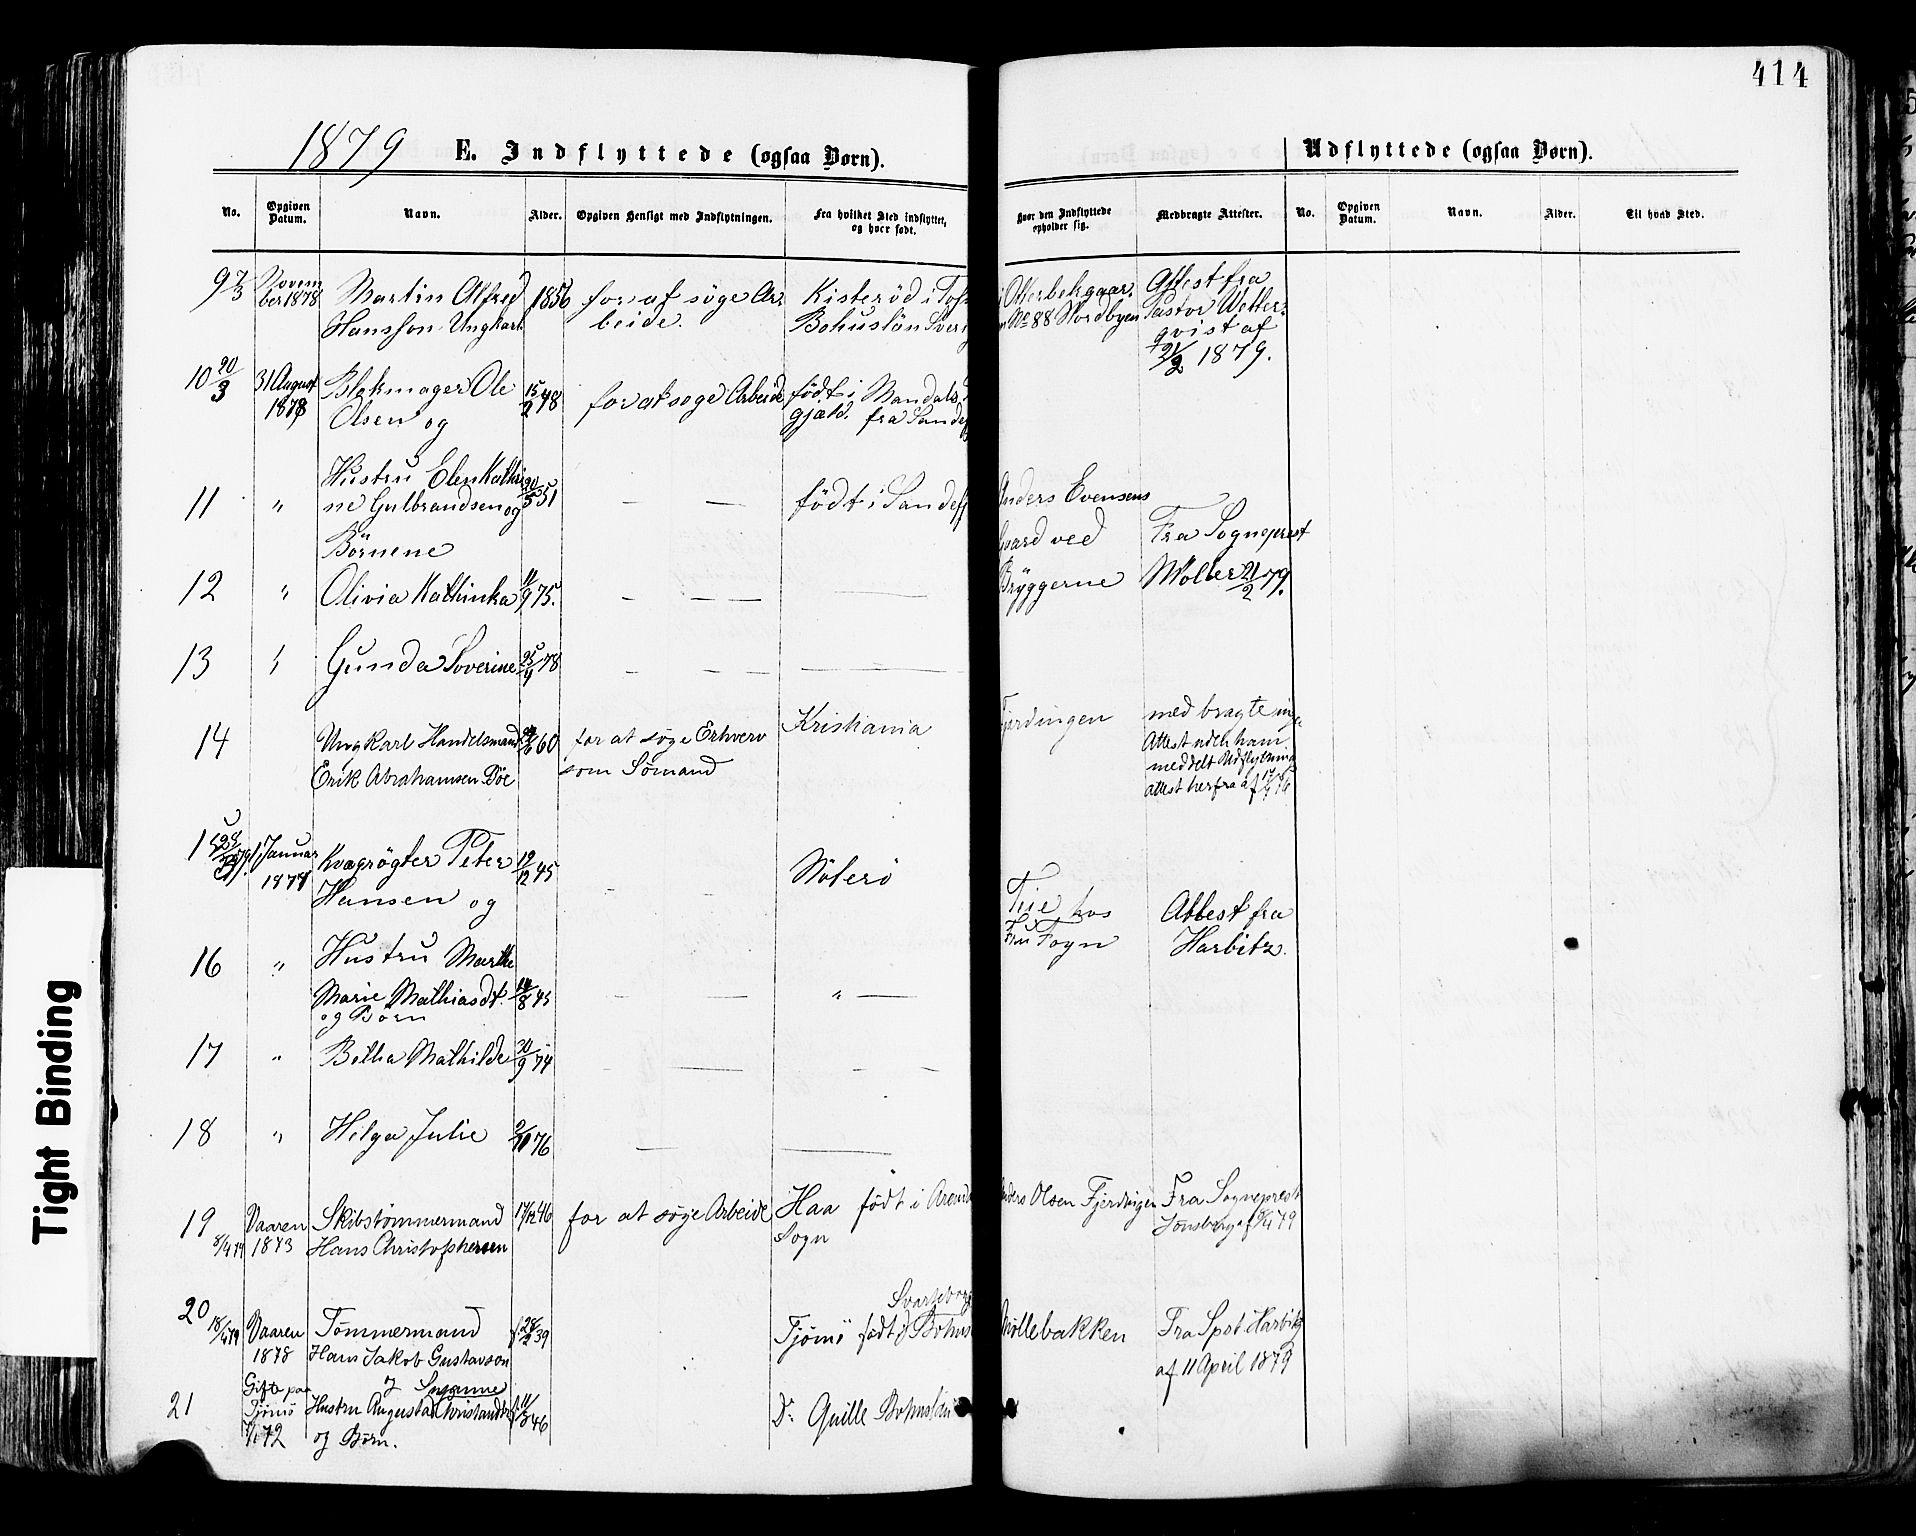 414
1879 E. Indflyttede (ogsaa Børn).
Udflyttede (ogsaa Børn).
No.
Opgiven Datum.
Navn.
Alder.
Opgiven Hensigt med Indflytningen.
Fra hvilket Sted indflyttet, og hvor født.
Hvor den Indflyttede opholder sig.
Medbragte Attester.
No.
Opgiven Datum.
Navn.
Alder.
Til hvad Sted.
9 7/3 Novem Martin Alfred 1856 for at søge Ar Kisterød i Attest fra
ber 1878 Hansson Ungkarl beide. Bohuslän No 88 Nordbyen Pastor Wetter
qvist af
21/2 1879.
10 20/3 31 August Blikmager Ole 15/2 48 for at søge Arbeide født i Mandals
1878 Olsen og gjæld. fra Sandeff
Hustru Elen Kathri
11 " ne Gulbrandsen og 51 — — født i Sandeff Anders Evensens
Børnene Gaard ved Fra Sogneprest
12 " Olivia Kathinka 11/9 75. — — — Bryggerne Wolter 21/2 79.
13 " Gunda Soverine 25/4 78 — — —
14 Ungkarl Handelsmand 60 for at søge Erhverv Kristiania Fjerdingen medbragte
Erik Abrahamsen Bøe som Sømand Attest uden ham
meddelt Udflytnings
attest herfra af
15 28/3 79 1 Januar Kvægrøgter Peter 12/12 45 — — Nøterø
1879 Hansen og Teie hos Attest fra
Fru Fogn Harbitz.
16 " Hustru Marthe
Marie Mathiasdt. 14/8 45 — — " —
og Børn
17 " Betha Mathilde 30/9 74 — — — —
18 " Hilga Julie 2/11 76 — —
19 8/4 79 Vaaren Skibstømmermand 17/12 46 for at søge Arbeide Haa født i Arend Anders Olsen Fjerdingen Fra Sogneprest
1873 Hans Christophersen Sogn Jonsberg af 8/4 79
Svarteborg
20 18/4 79 Vaaren Tømmermand f 28/2 39 Tjømø født i Bohus Møllebakken Fra Spst Harbitz
1878 Hans Jakob Gustavson af 11 April 1879
Gift paa og Susanne
21 Tjømø Hustru Augusta f 11/8 46 Do Quille Bohuslän
72 og Børn.
Tight Binding